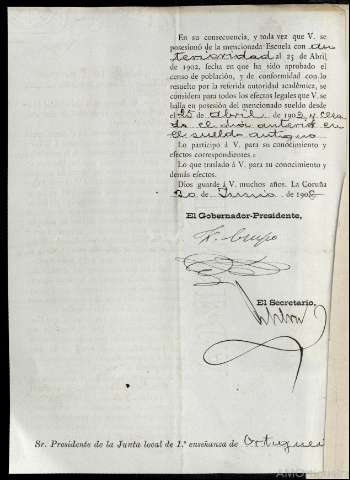 En su consecuencia, y toda vez que V. se
posesionó de la mencionada Escuela con an
terioridad al 25 de Abril
de 1902, fecha en que ha sido aprobado el
censo de población, y de conformidad con lo
resuelto por la referida autoridad académica, se
considera para todos los efectos legales que V. se
halla en posesión del mencionado sueldo desde
el 25 de Abril de 1902 y cesa
do el día anterior en
el sueldo antiguo
Lo participo á V. para su conocimiento y
efectos correspondientes.
Lo que traslado á V. para su conocimiento y
demás efectos.
Dios guarde á V. muchos años. La Coruña
20 de Junio de 190
El Gobernador-Presidente,
El Secretario,
Sr. Presidente de la Junta local de 1.ª enseñanza de Ortigueira
AMO